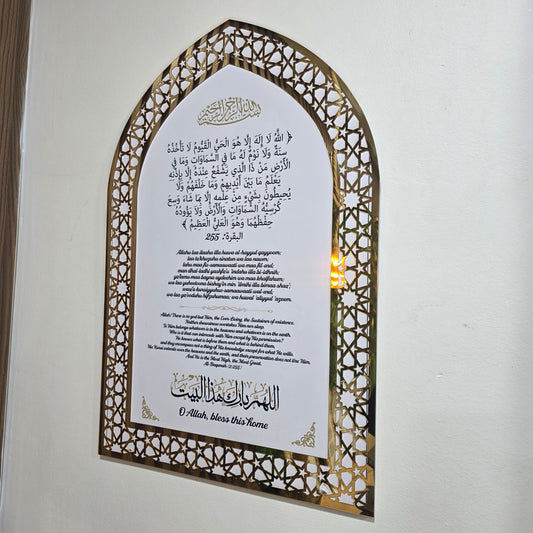 بسم الله الرحمن الرحيم
﴿ اللَّهُ لَا إِلَهَ إِلَّا هُوَ الْحَيُّ الْقَيُّومُ لَا تَأْخُذُهُ
سِنَةٌ وَلَا نَوْمٌ لَهُ مَا فِي السَّمَاوَاتِ وَمَا فِي
الْأَرْضِ مَنْ ذَا الَّذِي يَشْفَعُ عِنْدَهُ إِلَّا بِإِذْنِهِ
يَعْلَمُ مَا بَيْنَ أَيْدِيهِمْ وَمَا خَلْفَهُمْ وَلَا
يُحِيطُونَ بِشَيْءٍ مِنْ عِلْمِهِ إِلَّا بِمَا شَاءَ وَسِعَ
كُرْسِيُّهُ السَّمَاوَاتِ وَالْأَرْضَ وَلَا يَؤُودُهُ
حِفْظُهُمَا وَهُوَ الْعَلِيُّ الْعَظِيمُ ﴾
البقرة: 255
Allahu laa ilaaha illa huwa al-hayyul qayyoom;
laa ta'khuzuhu sinatun wa laa naum;
lahu maa fis-samaawaati wa maa fil-ard;
man dhal-ladhi yashfa'u 'indahu illa bi-idhnih;
ya'lamu maa bayna aydeehim wa maa khalfahum;
wa laa yuheetoona bishay'in min 'ilmihi illa bimaa shaa';
wasi'a kursiyyuhus-samaawaati wal-ard;
wa laa ya'oodahu hifzuhumaa; wa huwal 'aliyyul 'azeem.
Allah! There is no god but Him, the Ever-Living, the Sustainer of existence.
Neither drowsiness overtakes Him nor sleep.
To Him belongs whatever is in the heavens and whatever is on the earth.
Who is it that can intercede with Him except by His permission?
He knows what is before them and what is behind them,
and they encompass not a thing of His knowledge except for what He wills.
His Kursi extends over the heavens and the earth, and their preservation does not tire Him.
And He is the Most High, the Most Great.
Al-Baqarah (2:255)
اللهم بارك هذا البيت
O Allah, bless this home